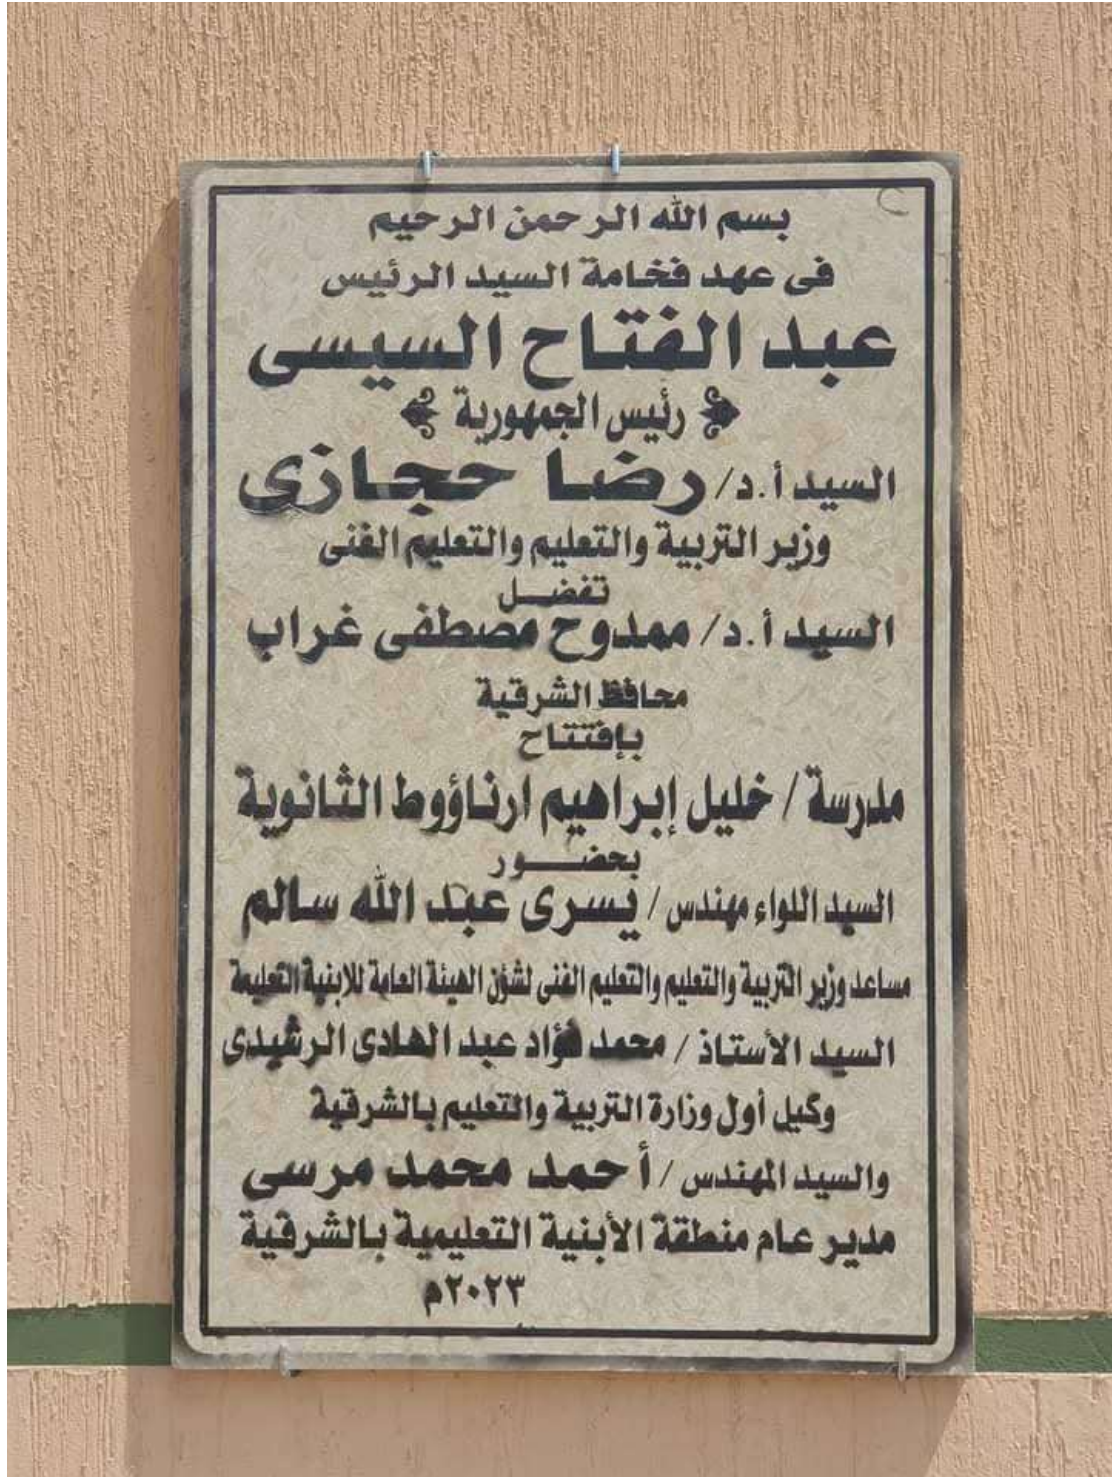 بسم الله الرحمن الرحيم
فى عهد فخامة السيد الرئيس
عبد الفتاح السيسى
رئيس الجمهورية
السيد أ.د/ رضا حجازى
وزير التربية والتعليم والتعليم الفنى
تفضل
السيد أ.د/ ممدوح مصطفى غراب
محافظ الشرقية
بإفتتاح
مدرسة / خليل إبراهيم ارناؤوط الثانوية
بحضور
السيد اللواء مهندس / يسرى عبد الله سالم
مساعد وزير التربية والتعليم والتعليم الفنى لشؤن الهيئة العامة للابنية التعليمة
السيد الأستاذ / محمد فؤاد عبد الهادى الرشيدى
وكيل أول وزارة التربية والتعليم بالشرقية
والسيد المهندس / أحمد محمد مرسى
مدير عام منطقة الأبنية التعليمية بالشرقية
٢٠٢٣م